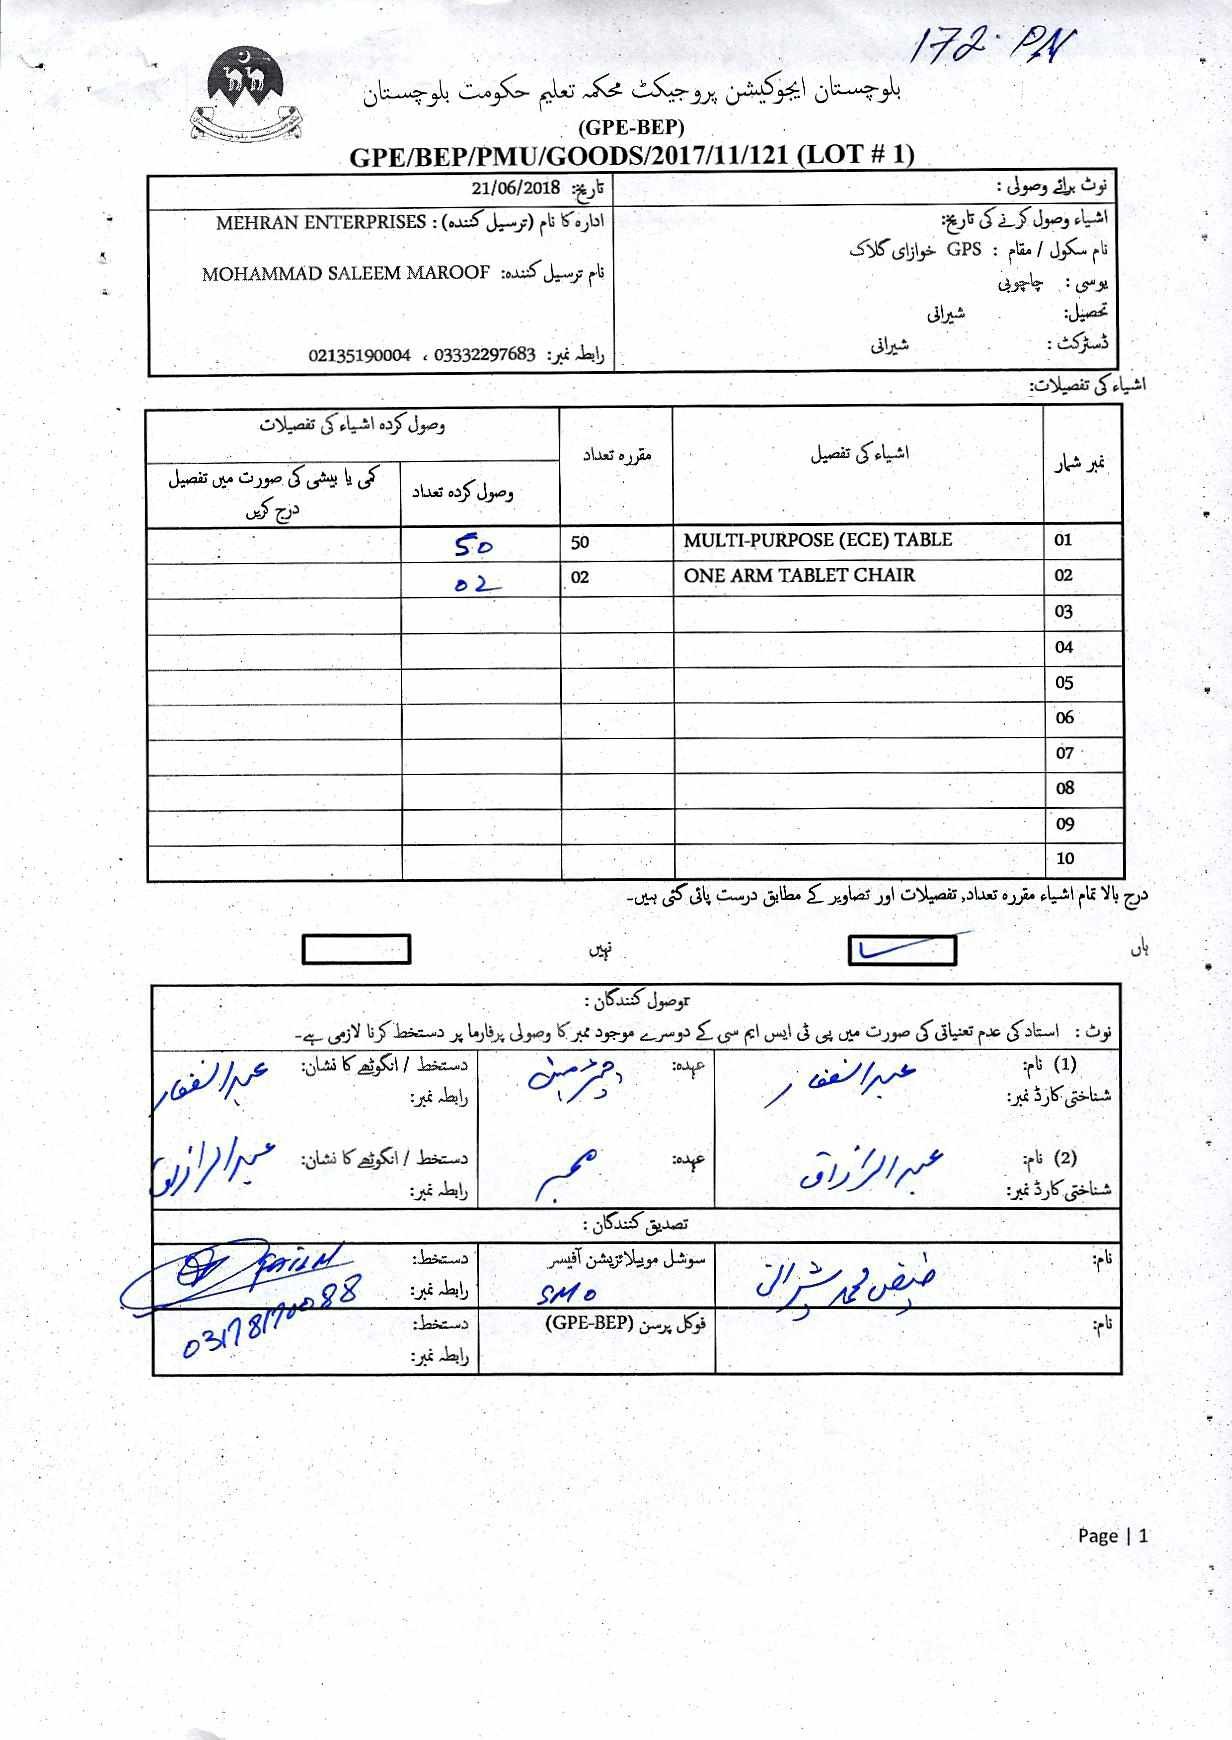 172 PN
بلوچستان ایجوکیشن پروجیکٹ محکمہ تعلیم حکومت بلوچستان
(GPE-BEP)
GPE/BEP/PMU/GOODS/2017/11/121 (LOT # 1)
نوٹ برائے وصولی :
تاریخ: 21/06/2018
اشیاء وصول کرنے کی تاریخ:
نام سکول / مقام : GPS خوازای گلاک
یوسی : چاچوبی
تحصیل: شیرانی
ڈسٹرکٹ : شیرانی
ادارہ کا نام (ترسیل کنندہ) : MEHRAN ENTERPRISES
نام ترسیل کنندہ: MOHAMMAD SALEEM MAROOF
رابطہ نمبر: 03332297683 ، 02135190004
اشیاء کی تفصیلات:
نمبر شمار اشیاء کی تفصیل مقررہ تعداد وصول کردہ اشیاء کی تفصیلات
وصول کردہ تعداد کمی یا بیشی کی صورت میں تفصیل درج کریں
01 MULTI-PURPOSE (ECE) TABLE 50 50
02 ONE ARM TABLET CHAIR 02 02
03
04
05
06
07
08
09
10
درج بالا تمام اشیاء مقررہ تعداد, تفصیلات اور تصاویر کے مطابق درست پائی گئی ہیں۔
ہاں نہیں
وصول کنندگان :
نوٹ : استاد کی عدم تعنیاتی کی صورت میں پی ٹی ایس ایم سی کے دوسرے موجود ممبر کا وصولی پرفارما پر دستخط کرنا لازمی ہے۔
(1) نام: عبدالغفار عہدہ: چیرمین دستخط / انگوٹھے کا نشان: عبدالغفار
شناختی کارڈ نمبر: رابطہ نمبر:
(2) نام: عبدالرزاق عہدہ: ممبر دستخط / انگوٹھے کا نشان: عبدالرزاق
شناختی کارڈ نمبر: رابطہ نمبر:
تصدیق کنندگان :
نام: محمد شیرانی سوشل موبیلائزیشن آفیسر دستخط:
SMO رابطہ نمبر: 03178170088
نام: فوکل پرسن (GPE-BEP) دستخط:
رابطہ نمبر:
Page | 1